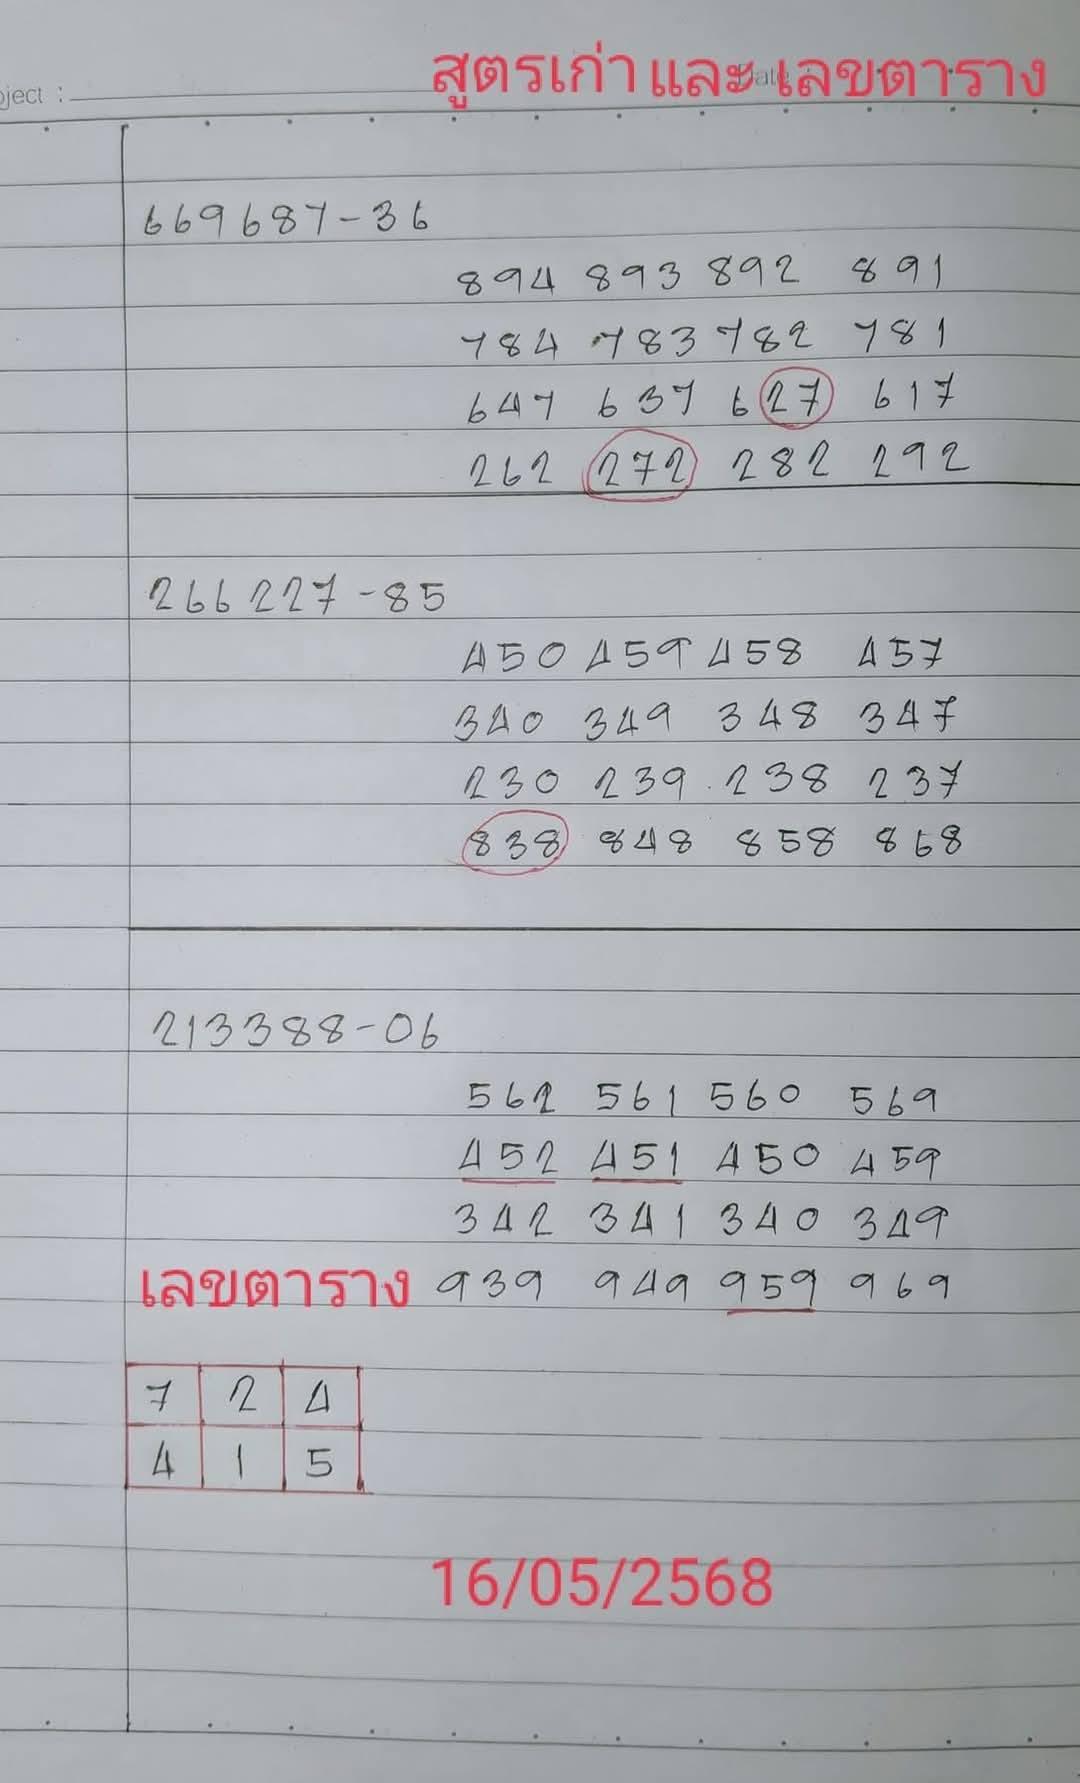 สูตรเก่า และ เลขตาราง
Date
ject :
669687-36
894 893 892 891
784 783 782 781
647 637 627 617
262 272 282 292
266227-85
450 459 458 457
340 349 348 347
230 239 238 237
838 848 858 868
213388-06
562 561 560 569
452 451 450 459
342 341 340 349
เลขตาราง 939 949 959 969
7 2 4
4 1 5
16/05/2568